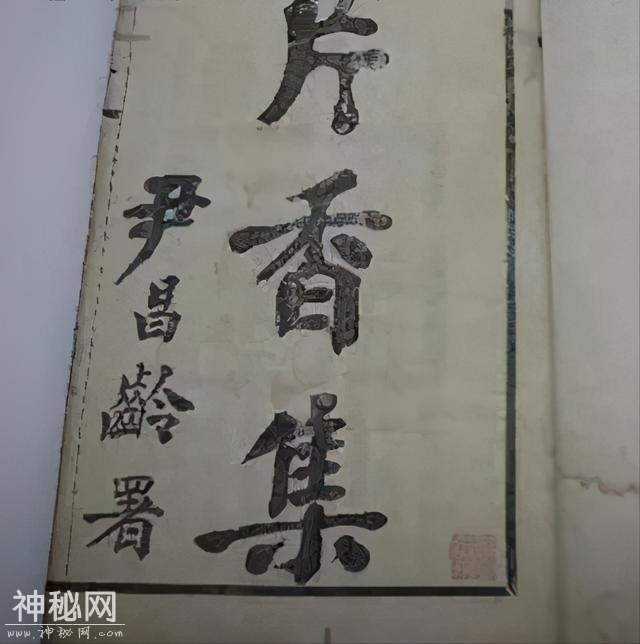 片香集
尹昌齡署
神秘网
www.神秘网.com